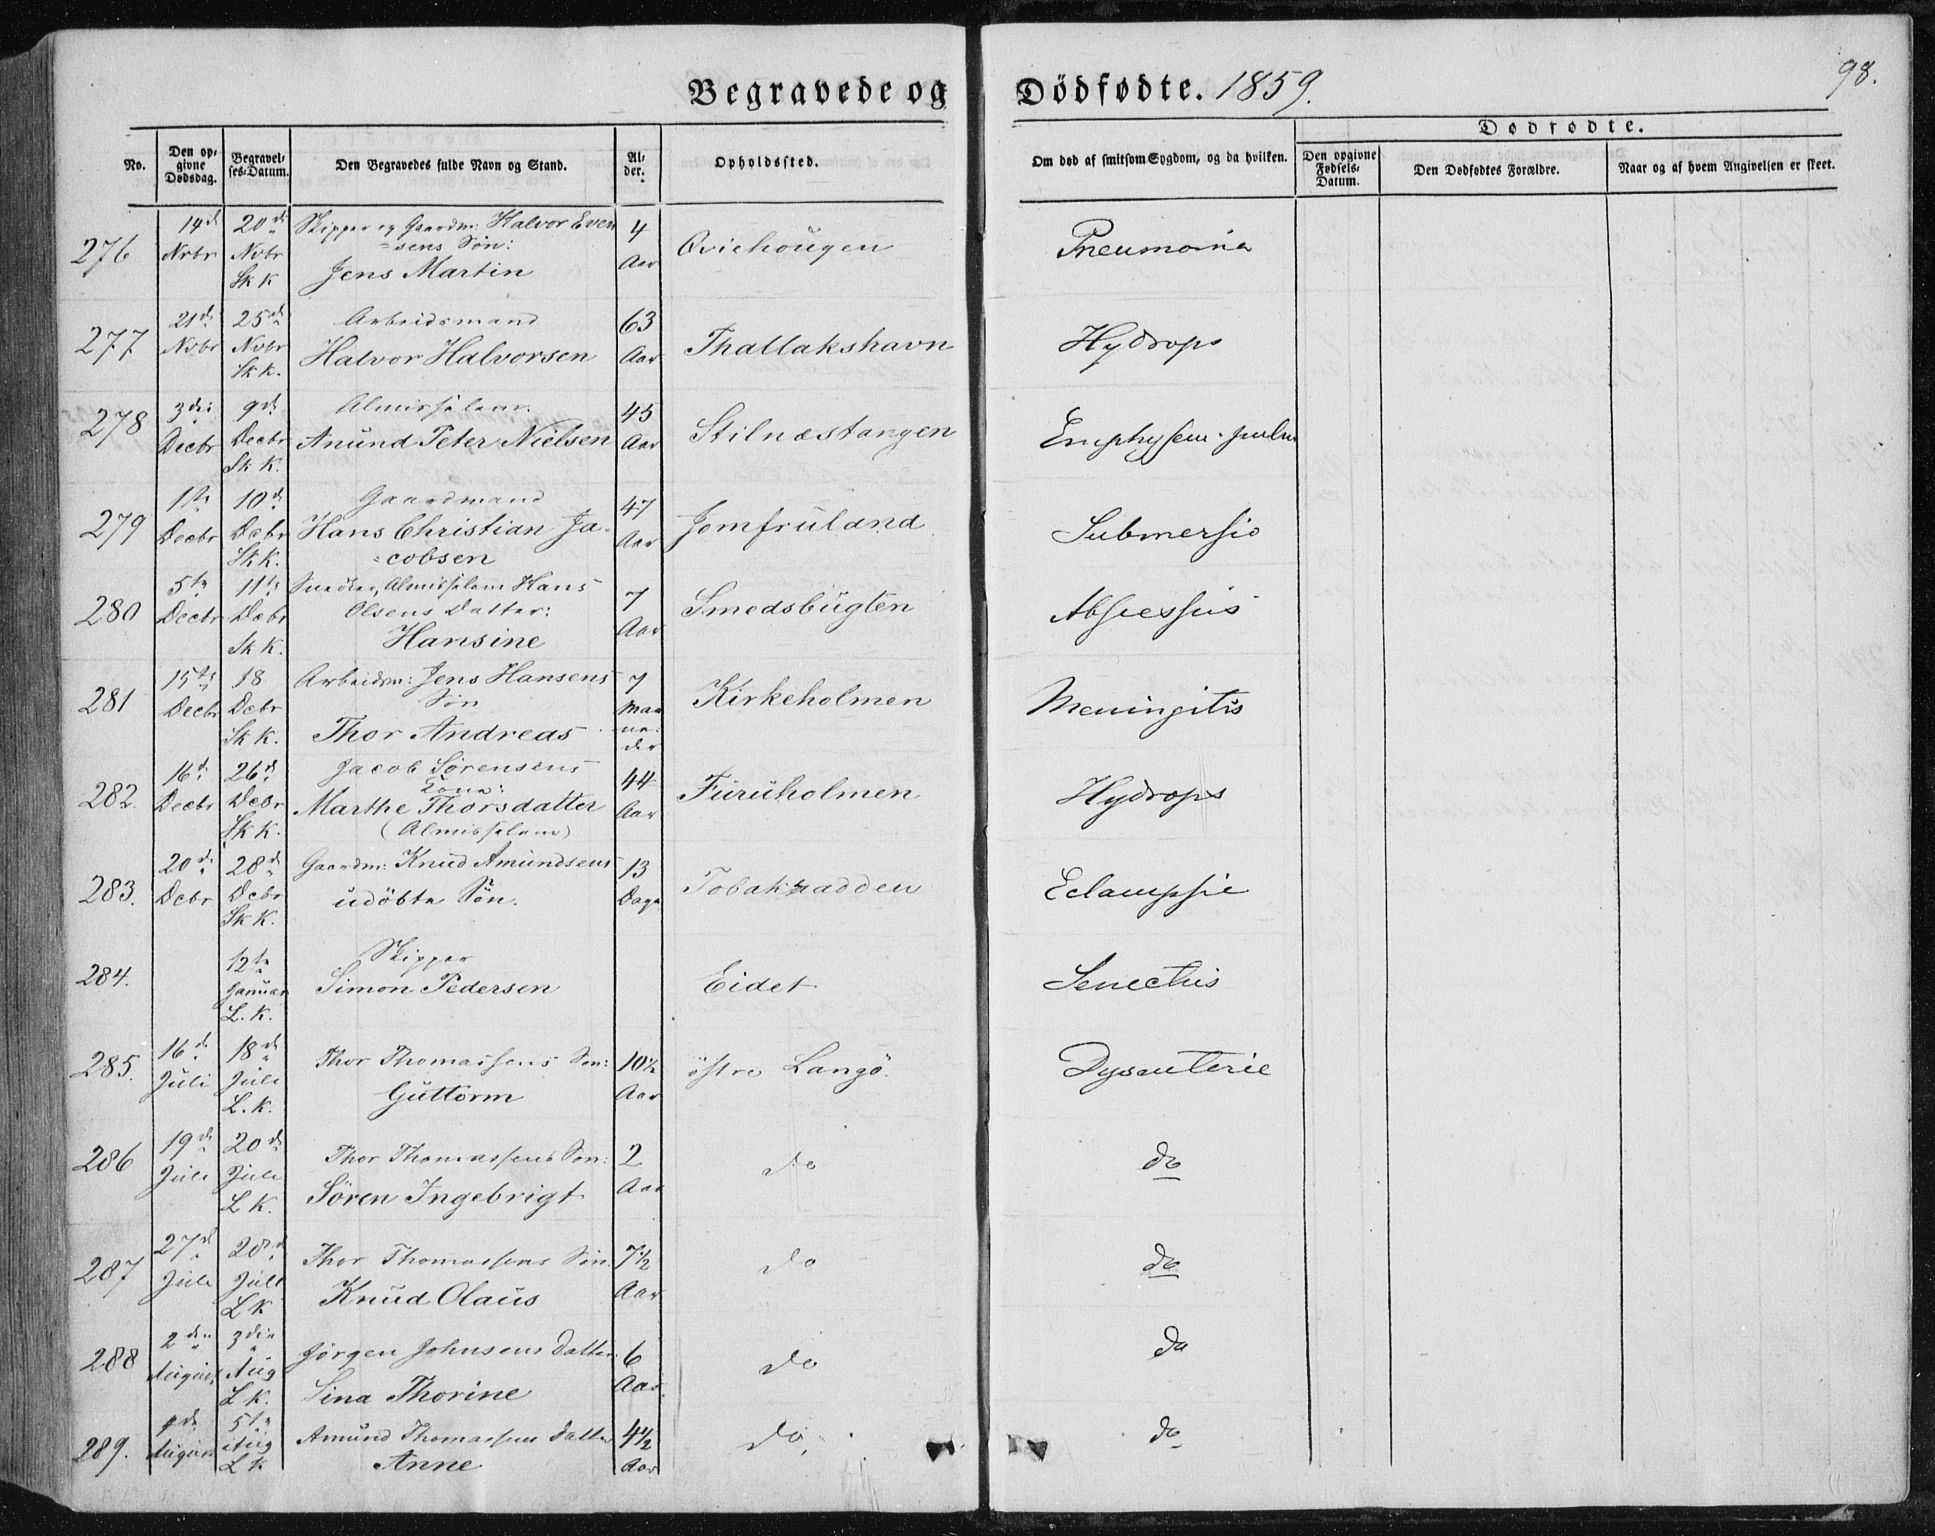 Begravede og Dödfødte. 1859.
98.
No.
Den opgivne Dødsdag.
Begravelses-Datum.
Den Begravedes fulde Navn og Stand.
Alder.
Opholdssted.
Om død af smitsom Sygdom, og da hvilken.
Dødfødte.
Den opgivne Fødsels-Datum.
Den Dødfødtes Forældre.
Naar og af hvem Angivelsen er skeet.
276 14d Nvbr 20d Nvbr Sk K Skipper og Gaardm: Halvor Even=sens Søn: Jens Martin 4 Aar Qviehougen Pneumonia
277 21d Nvbr 25d Nvbr Sk K. Arbeidsmand Halvor Halvorsen 63 Aar Thallakshavn Hydrops
278 3die Decbr 9d Decbr Sk K. Almisselem. Anund Peter Nielsen 45 Aar Stilnæstangen Emphysem. pulm
279 1te Decbr 10d Dcbr Sk K. Gaardmand Hans Christian Ja=cobsen 47 Aar Jomfruland Submersio
280 5te Decbr 11te Dcbr Sk K. Almisselem Hans Olsens Datter: Hansine 7 Aar Smedsbugten Abscessus
281 15te Decbr 18 Dcbr Sk K. Arbeidsm: Jens Hansens Søn Thor Andreas 7 Maaneder Kirkeholmen Meningitis
282. 16d Decbr 26d Dcbr Sk K. Jacob Sørensens Kone: Marthe Thorsdatter (Almisselem) 44 Aar Furuholmen Hydrops
283. 20d Dcbr 28d Dcbr Sk K. Gaardm: Knud Amundsens udöbte Søn. 13 Dage Tobaknadden Eclampsie
284. 12te Januar L. K. Skipper Simon Pedersen Eidet Senectus
285. 16d Juli 18d Juli L. K. Thor Thomassens Søn: Guttorm 10½ Aar östre Langö. Dysenterie
286 19d Juli 20d Juli L K. Thor Thomassens Søn: Sören Ingebrigt 2 Aar do do
287 27d Juli 28d Juli L K Thor Thomassens Søn. Knud Olaus 7½ Aar do do
288 2den August 3die Aug L K. Jørgen Johnsens Datter Lina Thorine 6 Aar do do
289. August 5te Aug L K Amund Thomassens Datter Anne 4½ Aar do. do